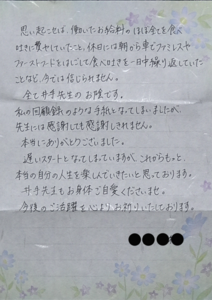 思い起こせば、働いたお給料のほぼ全てを食べ
吐きに費やしていたこと、休日には朝から車でファミレスや
ファーストフードをはしごして食べ吐きを一日中繰り返していた
ことなど、今では信じられません。
全て井手先生のお陰です。
私の回顧録のような手紙となってしまいましたが、
先生には感謝しても感謝しきれません。
本当にありがとうございました。
遅いスタートとなってしまっていますが、これからもっと、
本当の自分の人生を楽しんでいきたいと思っております。
井手先生もお身体ご自愛くださいませ。
今後のご活躍を心よりお祈りいたしております。